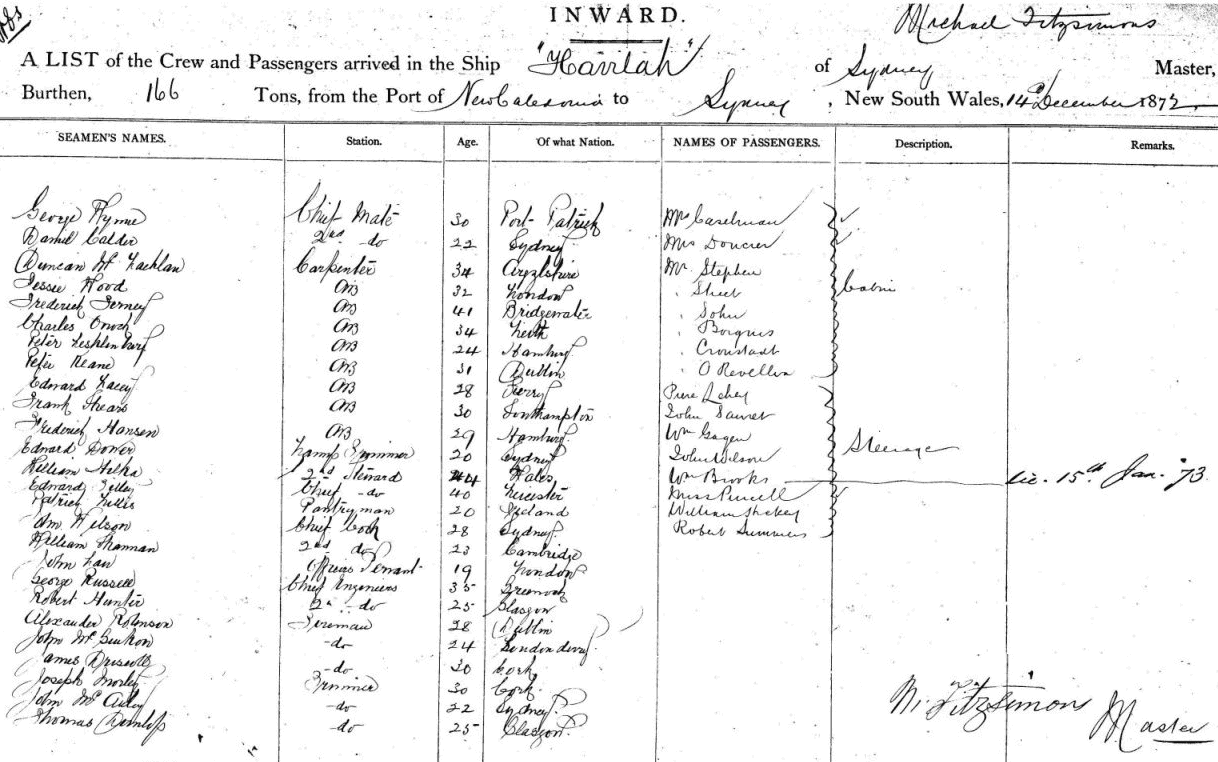 INWARD.
Michael Fitzsimons
A LIST of the Crew and Passengers arrived in the Ship "Havilah" of Sydney Master,
Burthen, 166 Tons, from the Port of New Caledonia to Sydney, New South Wales, 14th December 1872
SEAMEN'S NAMES. Station. Age. Of what Nation. NAMES OF PASSENGERS. Description. Remarks.
George Chief Mate 30 Port Patrick Mrs Caselman
Daniel Calder 2nd do 22 Sydney Mrs Doucier
Duncan Mc Lachlan Carpenter 34 Argylshire Mr Stephen
Jessie Hood AB 32 London Street Cabin
Frederick AB 41 Bridgewater John
Charles Enoch AB 34 Leith Borgnis
Peter AB 24 Hamburg Cronstadt
Peter Keane AB 31 Dublin O Revellin
Edward Lacey AB 28 Pierre
Frank AB 30 Southampton John
Frederick Hansen AB 29 Hamburg Wm Gagen
Edward Dower Trimmer 20 Sydney John Wilson Steerage
William 2nd Steward 44 Wales Wm Brooks 15th Jan. 73
Edward Chief do 40 Leicester Miss Purcell
Patrick Pantryman 20 Ireland William
Wm Wilson Chief Cook 28 Sydney Robert Summers
William 2nd do 23 Cambridge
John 19 London
George Russell Chief Engineers 35 Greenock
Robert Hunter 2nd do 25 Glasgow
Alexander Robinson Fireman 28 Dublin
John do 24 Londonderry
James Driscoll do 30 Cork
Joseph Morley Trimmer 30 Cork
John Mc do 22 Sydney
Thomas Dunlop do 25 Glasgow
M. Fitzsimons
Master